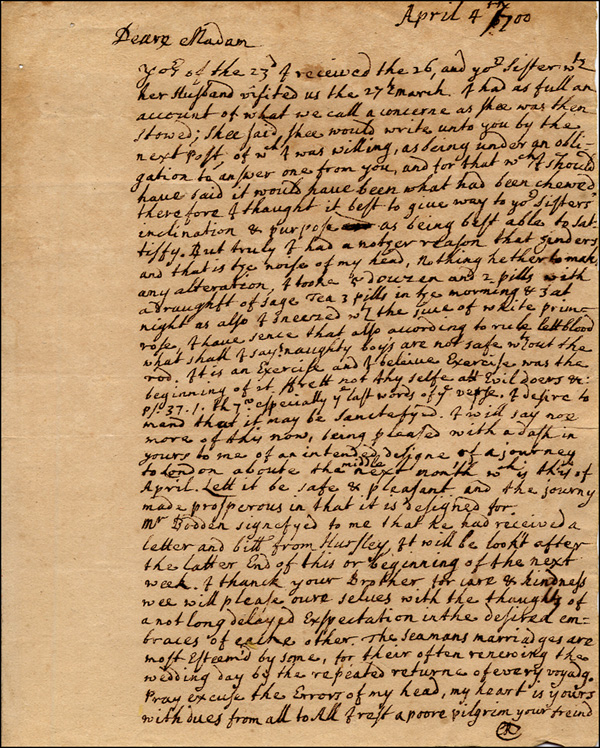 April 4th 1700
Deare Madam
Yors of the 23d I received the 26, and yor Sister wth
her Husband visited us the 27th march. I had as full an
account of what we call a concerne as shee was then
stowed; Shee said, shee would write unto you by the
next post, of wch I was willing, as being under an obli-
gation to answer one from you, and for that wch I should
have said it would have been what had been chewed
therefore I thought it best to give way to yor Sisters
inclination & purpose as being best able to sat-
tisfy. But truly I had a nother reason that hinders
and that is the noise of my head, nothing hetherto makes
any alteration, I tooke a dowzen and 2 pills with
a draught of Sage Tea 3 pills in the morning & 3 at
night as also I sneezed wth the juce of white prim-
rose, I have sence that also according to rule lett blood
what shall I say? naughty boys are not safe wthout the
rod. It is an Exercise and I beleive Exercise was the
beginning of it ffrett not thy selfe att Evil doers &c:
ps: 37. 1. 7. especially ye last words of ye verse. I desire to
mend that it may be sanctefyd. I will say noe
more of this now, being pleased with a dash in
yours to me of an intended designe of a journey
to London aboute the middle next month wch is this of
April. Lett it be safe & pleasant and the journy
made prosperous in that it is designed for.
Mr Dodden signefyd to me that he had received a
letter and bill from Hursley, It will be lookt after
the latter End of this or beginning of the next
week. I thanck your Brother for care & kindness
wee will please oure selves with the thoughts of
a not long delayed Expectation in the desired em-
braces of eache other. The seamans marriadges are
most Esteem'd by some, for their often renewing the
wedding day by the repeated returne of every voyadg.
Pray excuse the Errors of my head, my heart is yours
with dues from all to All I rest a poore pilgrim your freind